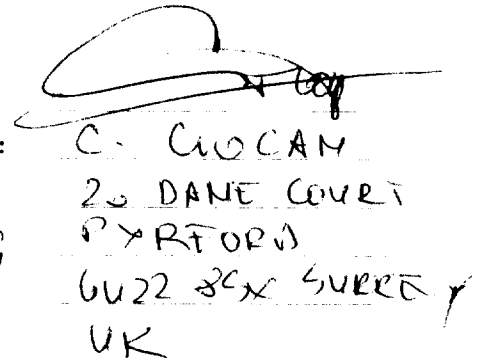 :
C. CIOCAN
20 DANE COURT
PYRFORD
GU22 8SX SURREY
UK